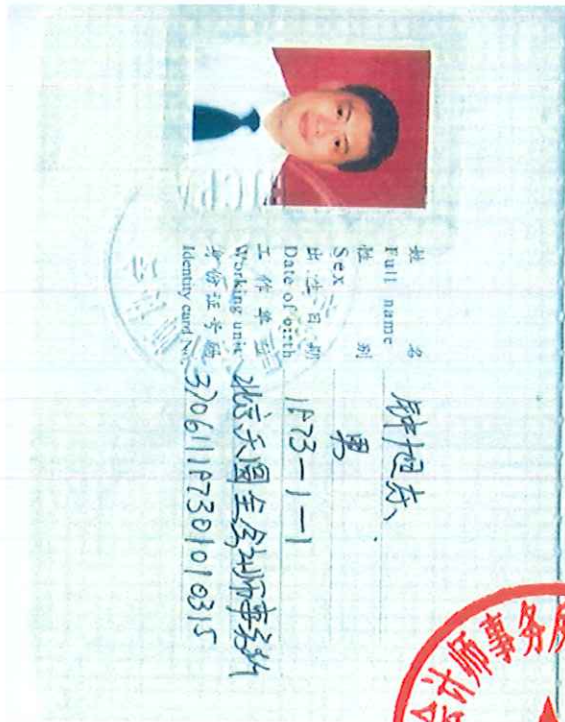 姓 名
Full name 钟旭东
性 别
Sex 男
出 生 日 期
Date of birth 1973-1-1
工 作 单 位
Working unit 北京天圆全会计师事务所
身 份 证 号 码
Identity card No. 370611197301010315
会计师事务所